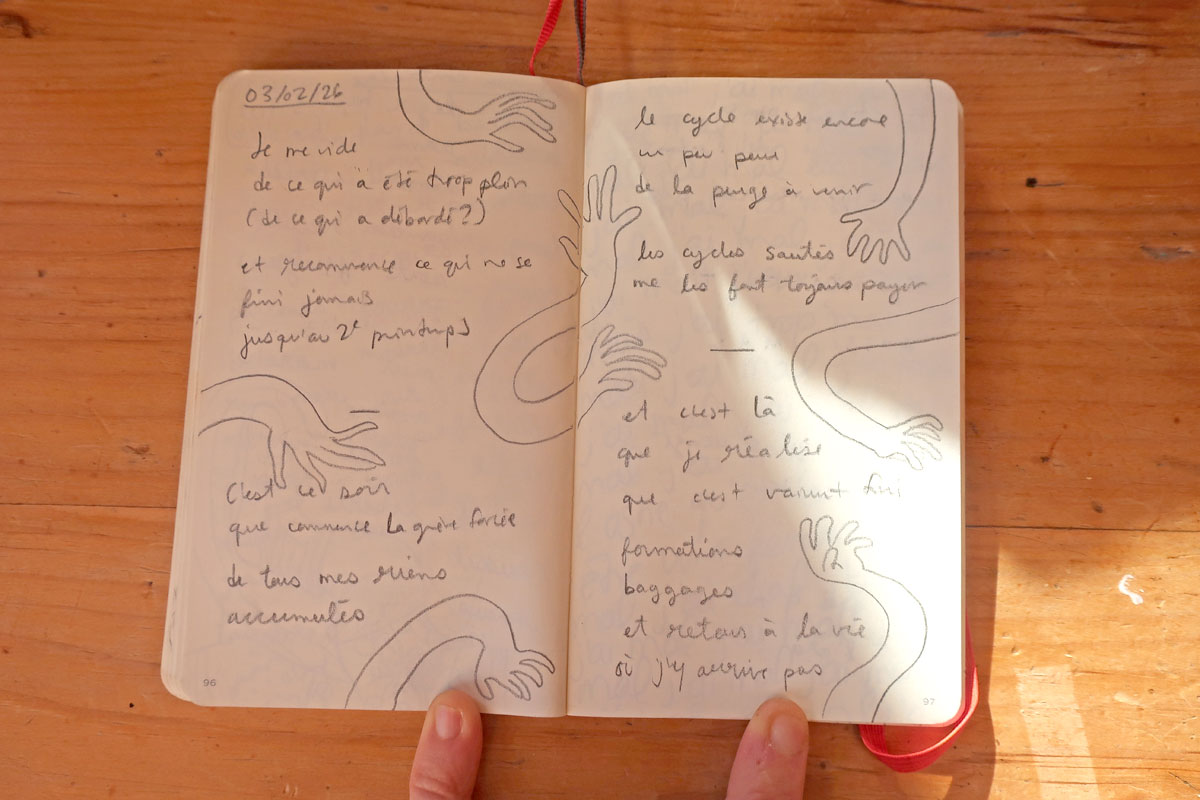 03/02/26
Je me vide
de ce qui a été trop plein
(de ce qui a débordé?)
et recommence ce qui ne se
fini jamais
jusqu'au 2e printemps
—
C'est ce soir
que commence la forcée
de tous mes riens
accumulés
96
le cycle existe encore
un peu peur
de la purge à venir
les cycles sautés
me les font toujours payer
—
et c'est là
que je réalise
que c'est vraiment fini
formations
baggages
et retour à la vie
où j'y arrive pas
97